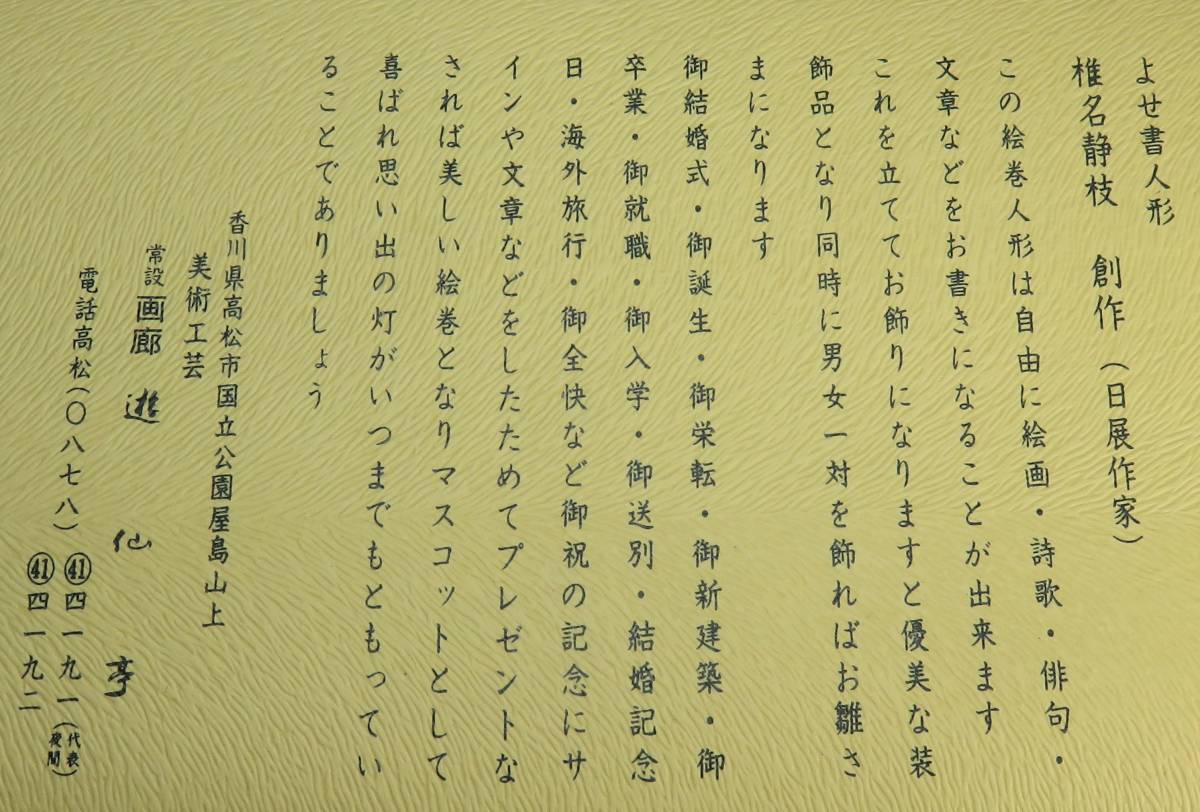 よせ書人形
椎名静枝 創作(日展作家)
この絵巻人形は自由に絵画・詩歌・俳句・
文章などをお書きになることが出来ます
これを立ててお飾りになりますと優美な装
飾品となり同時に男女一対を飾ればお雛さ
まになります
御結婚式・御誕生・御栄転・御新建築・御
卒業・御就職・御入学・御送別・結婚記念
日・海外旅行・御全快など御祝の記念にサ
インや文章などをしたためてプレゼントな
されば美しい絵巻となりマスコットとして
喜ばれ思い出の灯がいつまでもともってい
ることでありましょう
香川県高松市国立公園屋島山上
美術工芸
常設画廊 遊仙亭
電話高松(〇八七八)㊶四一九一(代表)
㊶四一九二(夜間)